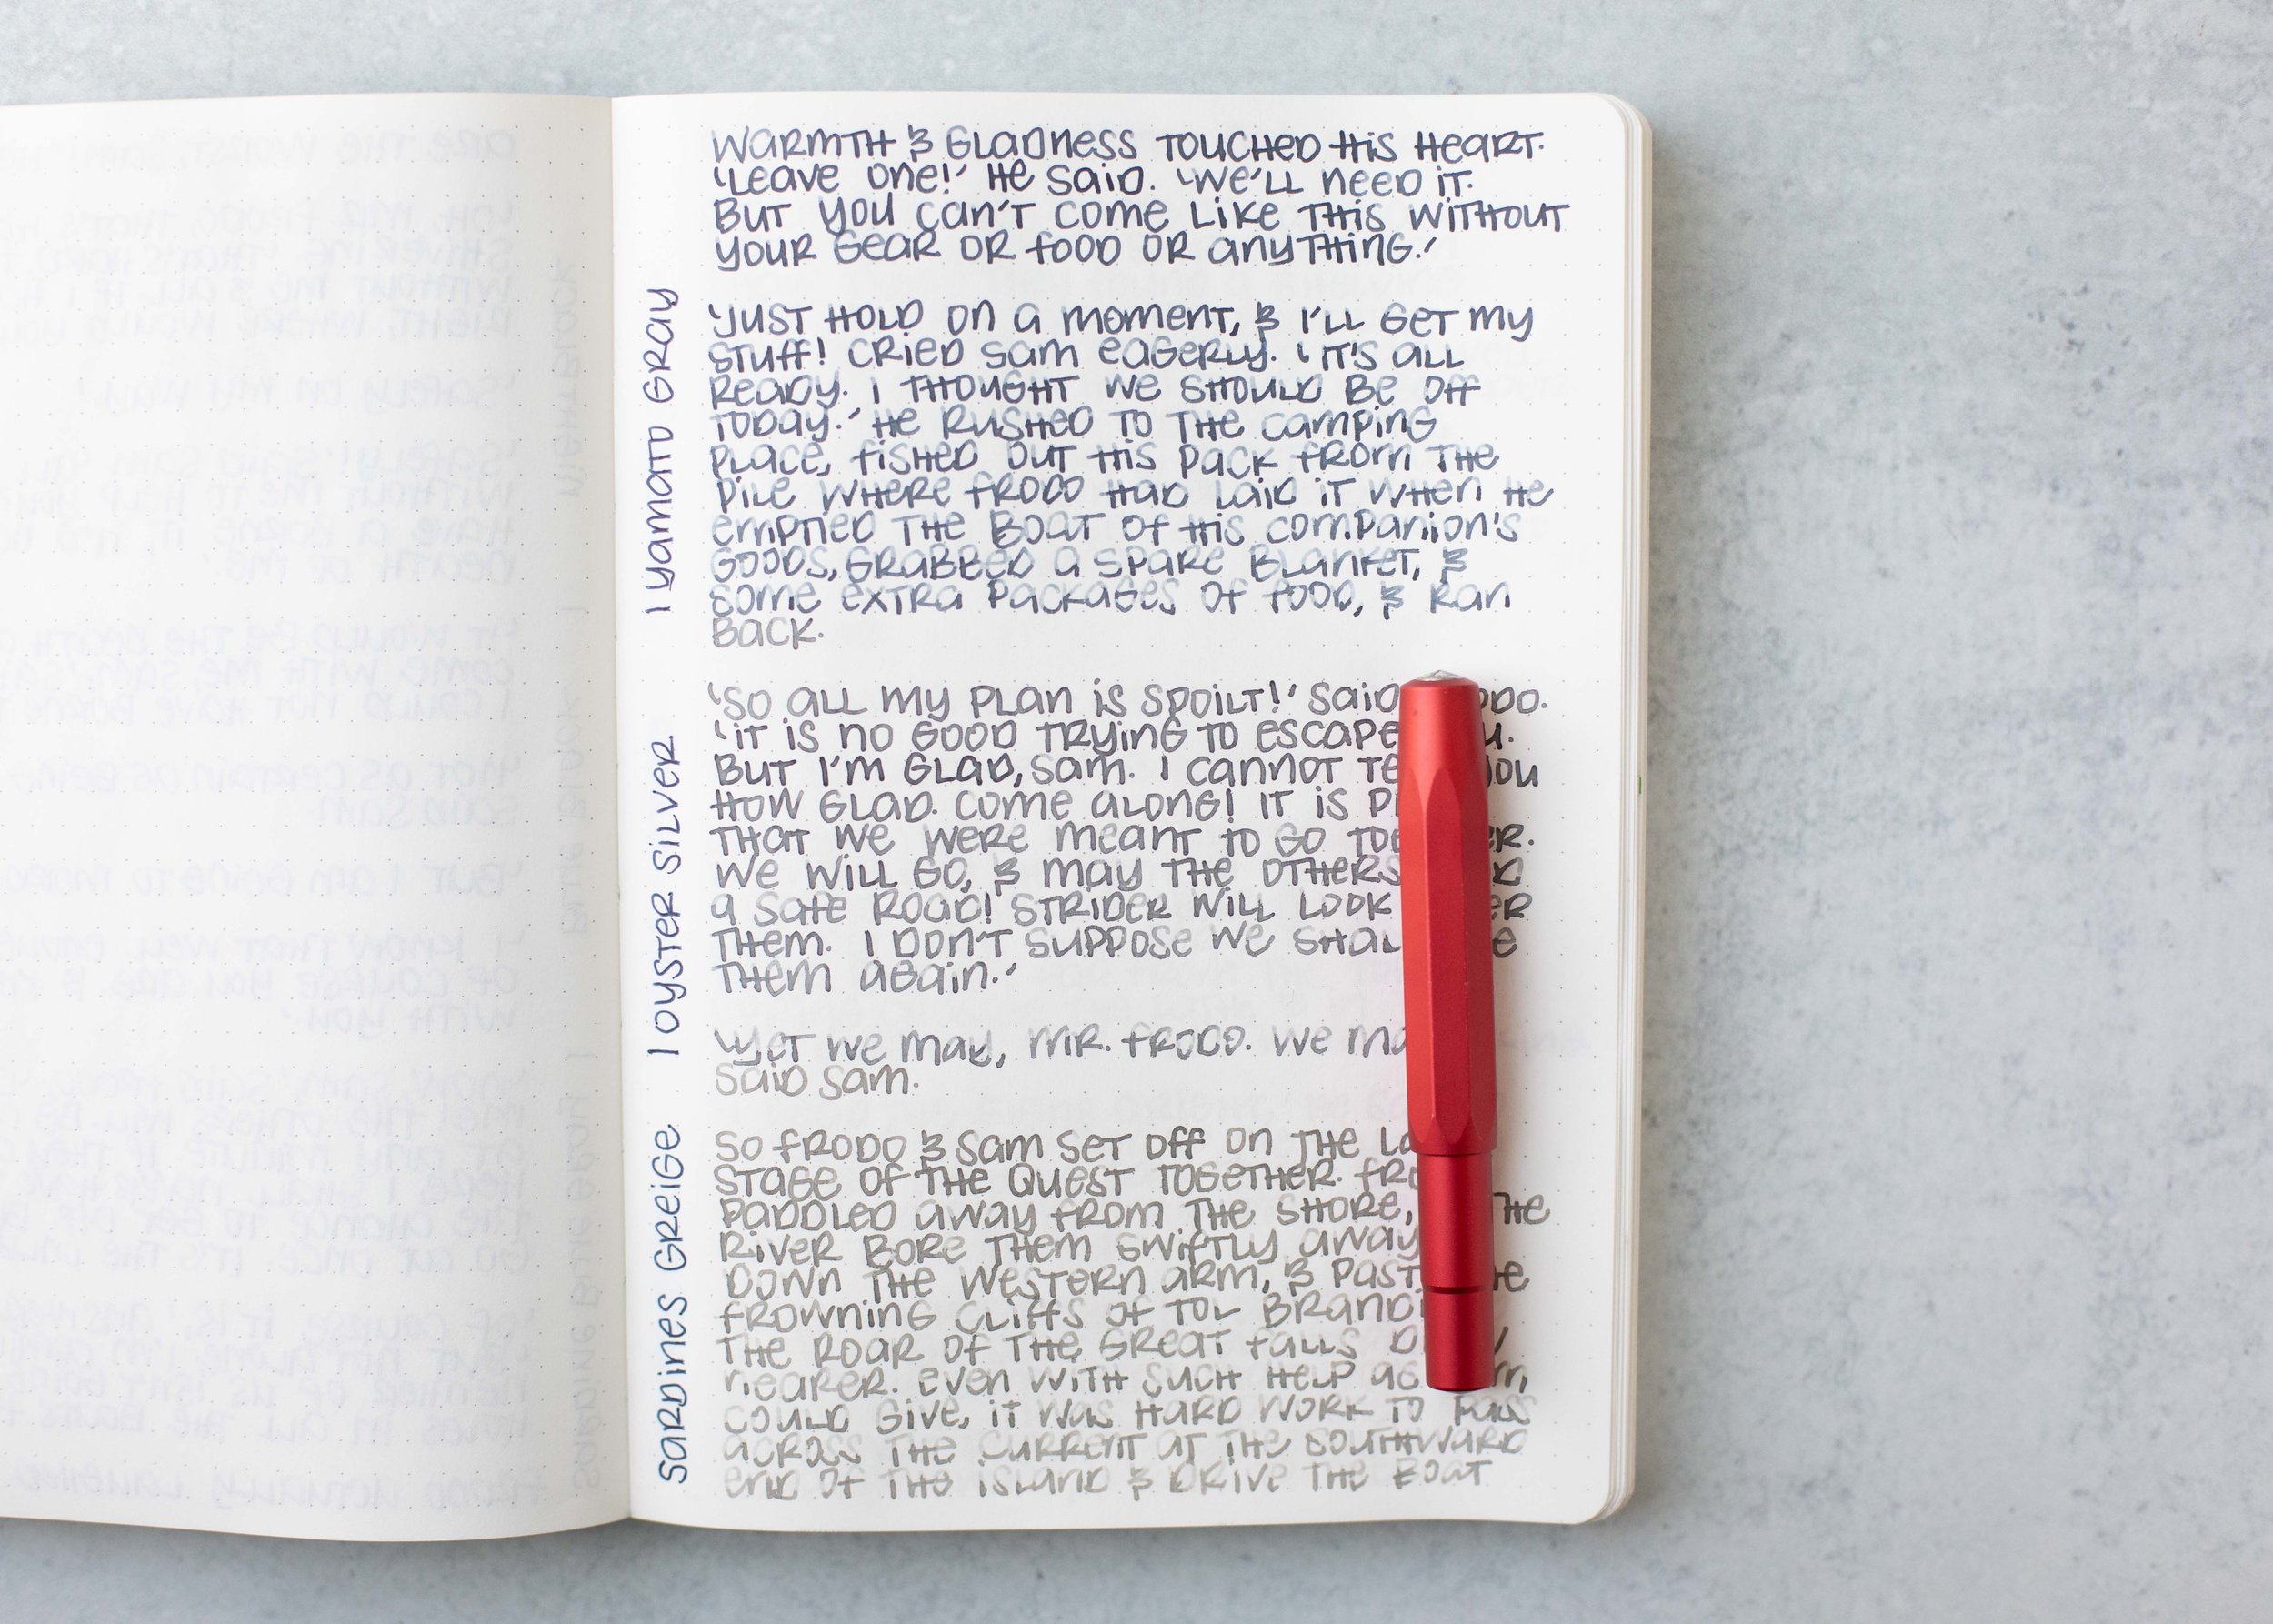 WARMTH & GLADNESS TOUCHED HIS HEART.
'LEAVE ONE!' HE SAID. 'WE'LL NEED IT.
BUT YOU CAN'T COME LIKE THIS WITHOUT
YOUR GEAR OR FOOD OR ANYTHING.'
'JUST HOLD ON A MOMENT, & I'LL GET MY
STUFF! CRIED SAM EAGERLY. 'IT'S ALL
READY. I THOUGHT WE SHOULD BE OFF
TODAY.' HE RUSHED TO THE CAMPING
PLACE, FISHED OUT HIS PACK FROM THE
PILE WHERE FRODO HAD LAID IT WHEN HE
EMPTIED THE BOAT OF HIS COMPANION'S
GOODS, GRABBED A SPARE BLANKET, &
SOME EXTRA PACKAGES OF FOOD, & RAN
BACK.
1 YAMATO GRAY
'SO ALL MY PLAN IS SPOILT!' SAID ODO.
'IT IS NO GOOD TRYING TO ESCAPE U.
BUT I'M GLAD, SAM. I CANNOT TE YOU
HOW GLAD. COME ALONG! IT IS P
THAT WE WERE MEANT TO GO TOG ER.
WE WILL GO, & MAY THE OTHERS D
A SAFE ROAD! STRIDER WILL LOOK ER
THEM. I DON'T SUPPOSE WE SHAL E
THEM AGAIN.'
'YET WE MAY, MR. FRODO. WE MA
SAID SAM.
1 OYSTER SILVER
SO FRODO & SAM SET OFF ON THE LA
STAGE OF THE QUEST TOGETHER. FRO
PADDLED AWAY FROM THE SHORE, THE
RIVER BORE THEM SWIFTLY AWAY
DOWN THE WESTERN ARM, & PAST HE
FROWNING CLIFFS OF TOL BRAND
THE ROAR OF THE GREAT FALLS D
NEARER. EVEN WITH SUCH HELP AS M
COULD GIVE, IT WAS HARD WORK TO PASS
ACROSS THE CURRENT AT THE SOUTHWARD
END OF THE ISLAND & DRIVE THE BOAT
SARDINES GREIGE